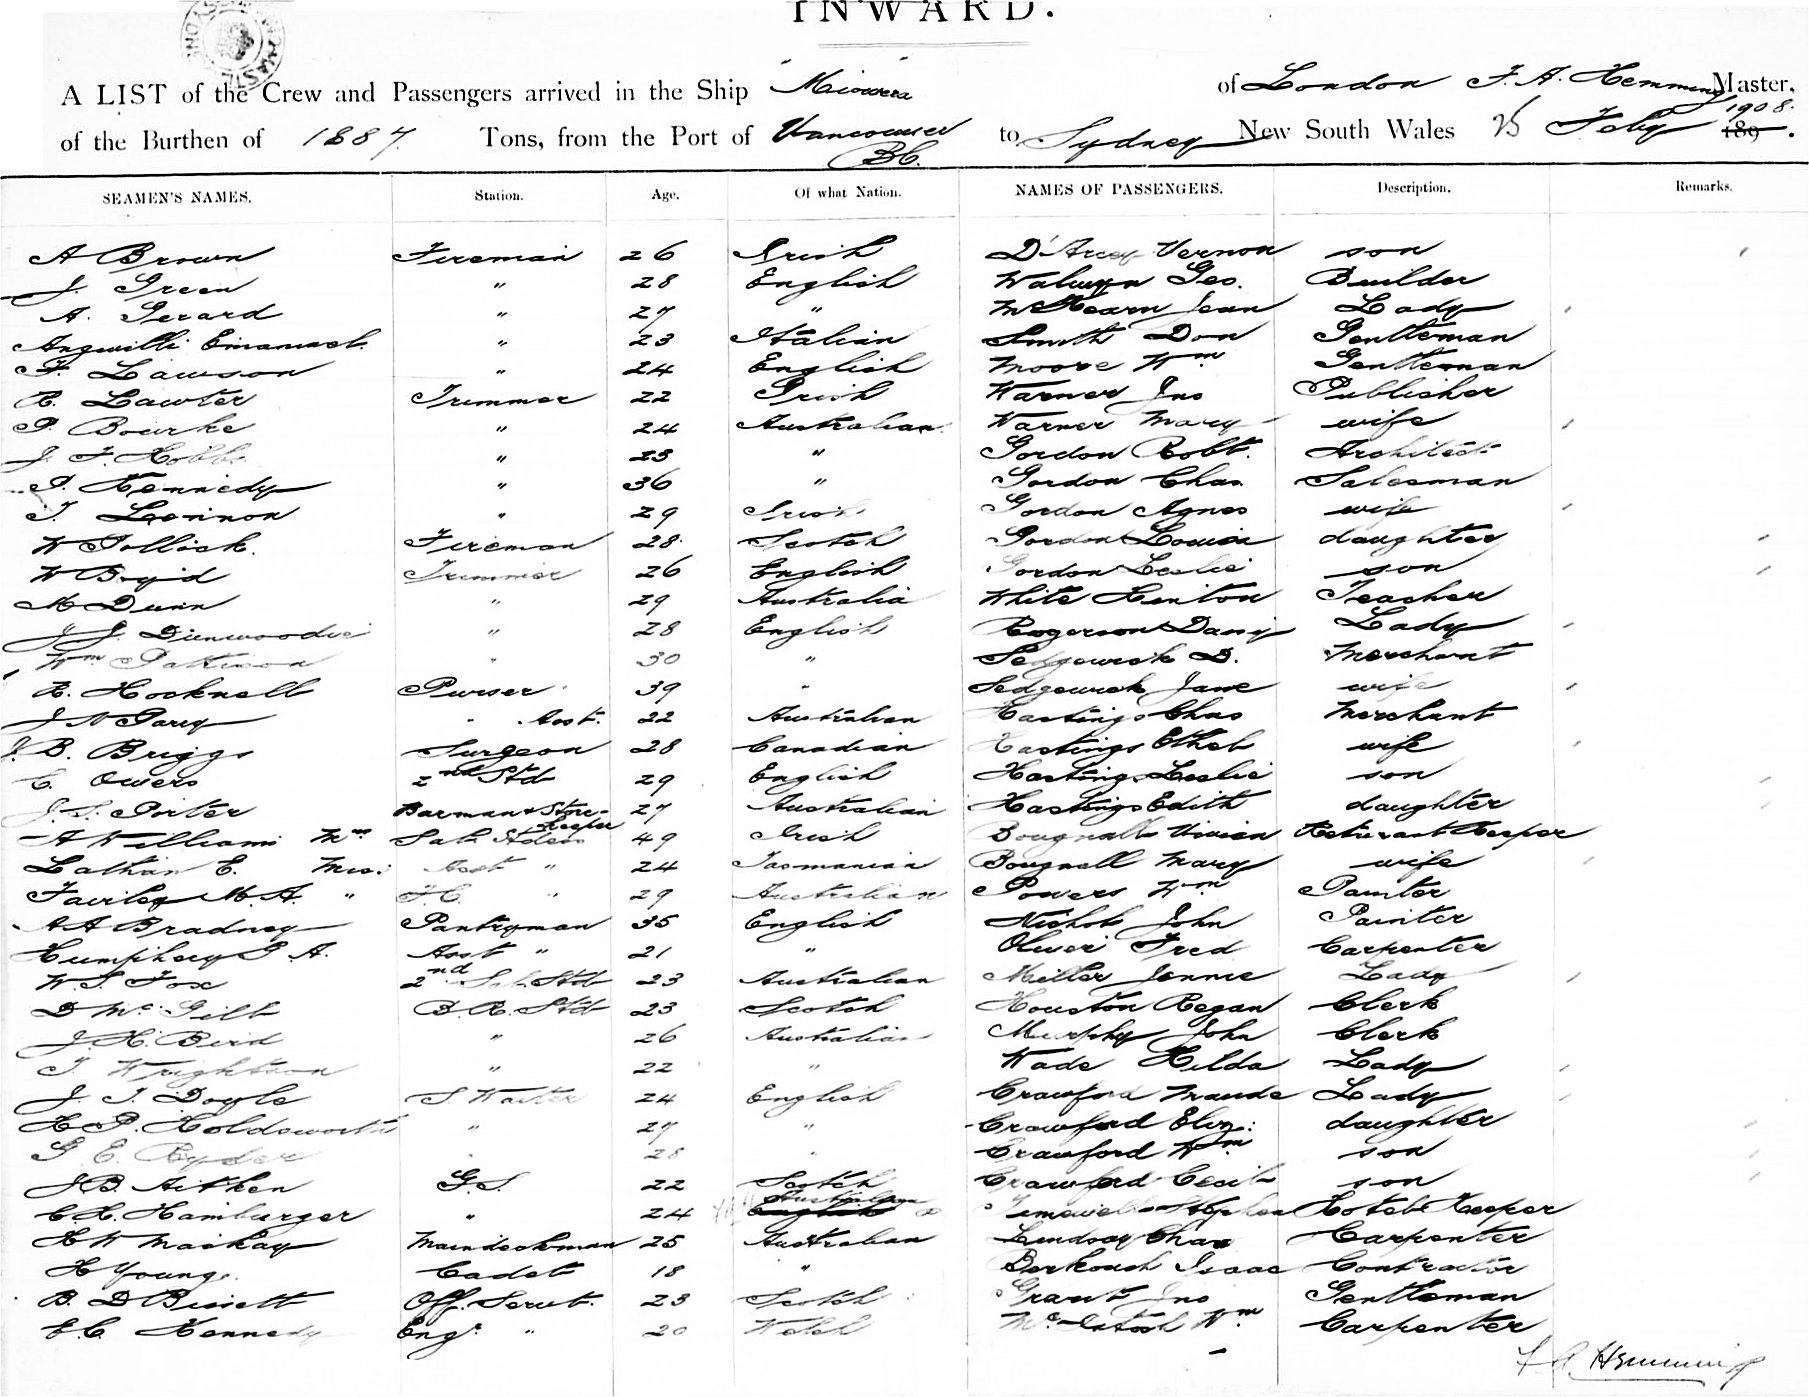 INWARD.
A LIST of the Crew and Passengers arrived in the Ship "Miowera" of London F. A. Hemming Master,
of the Burthen of 1887 Tons, from the Port of Vancouver B.C. to Sydney New South Wales 25 Feby 1908. 189 .
SEAMEN'S NAMES. Station. Age. Of what Nation. NAMES OF PASSENGERS. Description. Remarks.
A Brown Fireman 26 Irish D'Arcy Vernon son
J. Green " 28 English Walwyn Geo. Builder
A. Gerard " 27 " Jean Lady
Emanuel " 23 Italian Smith Don Gentleman
F. Lawson " 24 English Moore Wm Gentleman
R. Lawter Trimmer 22 Irish Warner Jno Publisher
P. Bourke " 24 Australian Warner Mary wife
J. F. Hobbs " 25 " Gordon Robt. Architect
P. Kennedy " 36 " Gordon Chas Salesman
T. Lennon " 29 Irish Gordon Agnes wife
W Pollock. Fireman 28 Scotch Gordon Louisa daughter
W Boyd Trimmer 26 English Gordon Leslie son
M Dunn " 29 Australia White Henton Teacher
J J. Dunwoodie " 28 English Rogerson Daisy Lady
Wm Pattison " 30 " Sedgewick D. Merchant
R. Hocknell Purser 39 " Sedgewick Jane wife
J N Parry " Asst. 22 Australian Hastings Chas Merchant
J. B. Briggs Surgeon 28 Canadian Hastings Ethel wife
C. Owers 2nd Std 29 English Hastings Leslie son
J. S. Porter Barman & Store-keeper 27 Australian Hastings Edith daughter
A Williams Mrs 49 Irish Vivian Keeper
Lathan E. Mrs. Asst " 24 Tasmanian Bougnall Mary wife
Fairley M. A. " F.C. " 29 Australian Powers Wm Painter
A A Bradney Pantryman 35 English Nichol John Painter
Humphery P. A. Asst " 21 " Oliver Fred Carpenter
W. S. Fox 2nd Sal. Std 23 Australian Miller Jennie Lady
D Mc Gill B. R. Std 23 Scotch Houston Regan Clerk
J. H. Bird " 26 Australian Murphy John Clerk
T. Wrightson " 22 " Wade Hilda Lady
J. T. Doyle S. Waiter 24 English Crawford Maude Lady
H. P. Holdsworth " 27 " Crawford Eliz: daughter
G E. Ryder " 28 " Crawford Wm son
J B. Aitken G.S. 22 Scotch Crawford Cecil son
C H. Hamburger " 24 Australian English Stephen Hotel Keeper
H W Mackay Maindeckman 25 Australian Lindsay Chas Carpenter
H Young. Cadet 18 " Isaac Contractor
B. D Bissett Off. Servt. 23 Scotch Grant Jno Gentleman
E. C. Kennedy Engr " 20 Welch McIntosh Wm Carpenter
F A. Hemming